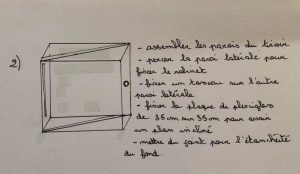 2)
- assembler les parois du tiroir
- percer la paroi latérale pour
fixer le robinet
- fixer un tasseau sur l'autre
paroi latérale
- fixer la plaque de plexiglas
de 35cm sur 55cm pour avoir
un plan incliné
- mettre du joint pour l'étanchéité
du fond.